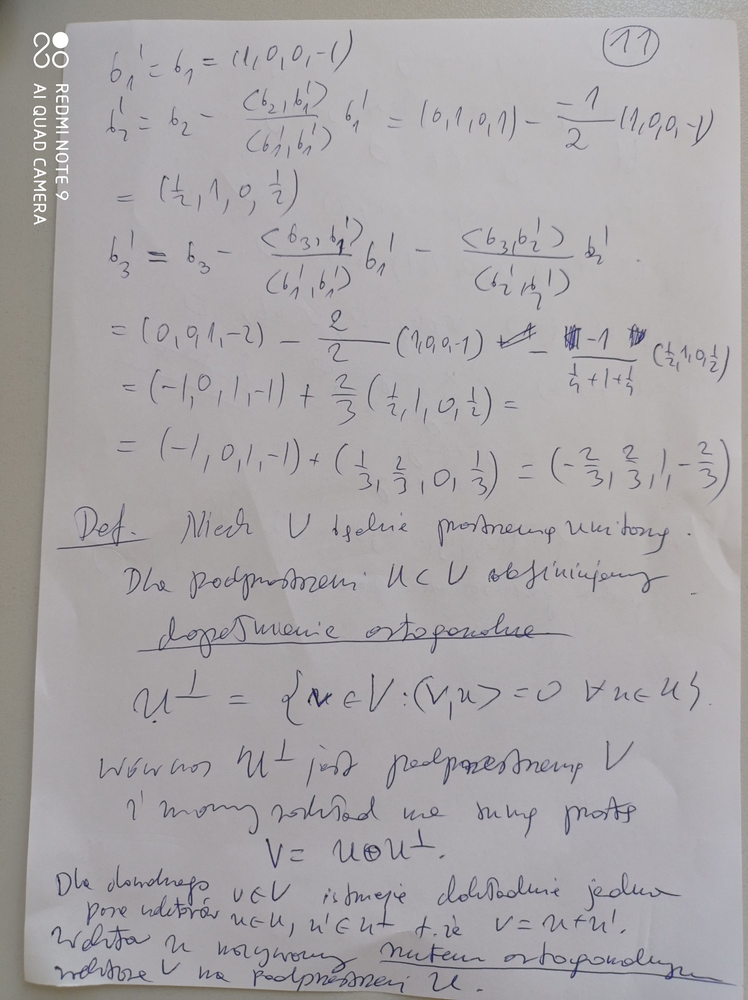 11
b₁' = b₁ = (1,0,0,-1)
b₂' = b₂ - ⟨b₂,b₁'⟩/⟨b₁',b₁'⟩ b₁' = (0,1,0,1) - -1/2 (1,0,0,-1)
= (1/2, 1, 0, 1/2)
b₃' = b₃ - ⟨b₃,b₁'⟩/⟨b₁',b₁'⟩ b₁' - ⟨b₃,b₂'⟩/⟨b₂',b₂'⟩ b₂'
= (0,0,1,-2) - 2/2 (1,0,0,-1) - -1/(1/4+1+1/4) (1/2,1,0,1/2)
= (-1,0,1,-1) + 2/3 (1/2,1,0,1/2) =
= (-1,0,1,-1) + (1/3, 2/3, 0, 1/3) = (-2/3, 2/3, 1, -2/3)
Def. Niech V będzie przestrzenią unitarną.
Dla podprzestrzeni U⊂V definiujemy
dopełnienie ortogonalne
U⊥ = {v∈V: ⟨v,u⟩ = 0 ∀u∈U}.
Wówczas U⊥ jest podprzestrzenią V
i mamy rozkład na sumę prostą
V = U⊕U⊥.
Dla dowolnego v∈V istnieje dokładnie jedna
para wektorów u∈U, u'∈U⊥ t.że v = u+u'.
Wektor u nazywamy rzutem ortogonalnym
wektora v na podprzestrzeń U.
REDMI NOTE 9
AI QUAD CAMERA